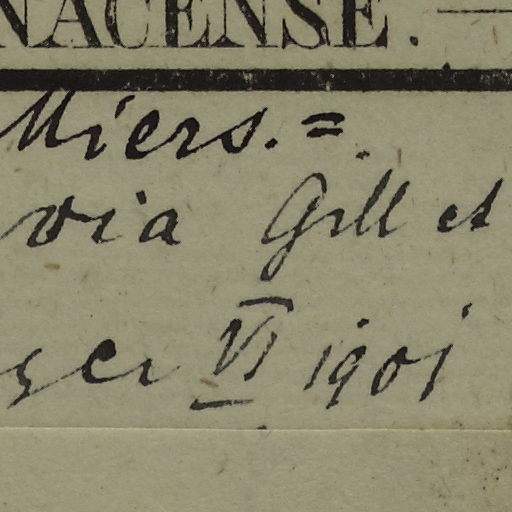 NACENSE. —
Miers. =
via Gill et
ger VI 1901